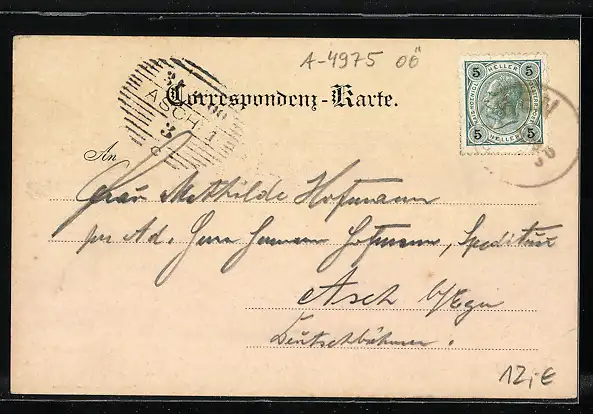 A-4975 OÖ
5 HELLER 5
5 HELLER 5
ASCH. 1
Correspondenz-Karte.
An
Frau Mathilde Hofmann
per Ad. Herrn Hermann Hofmann, Spediteur
Asch b/Eger
Deutschböhmen.
12,-€